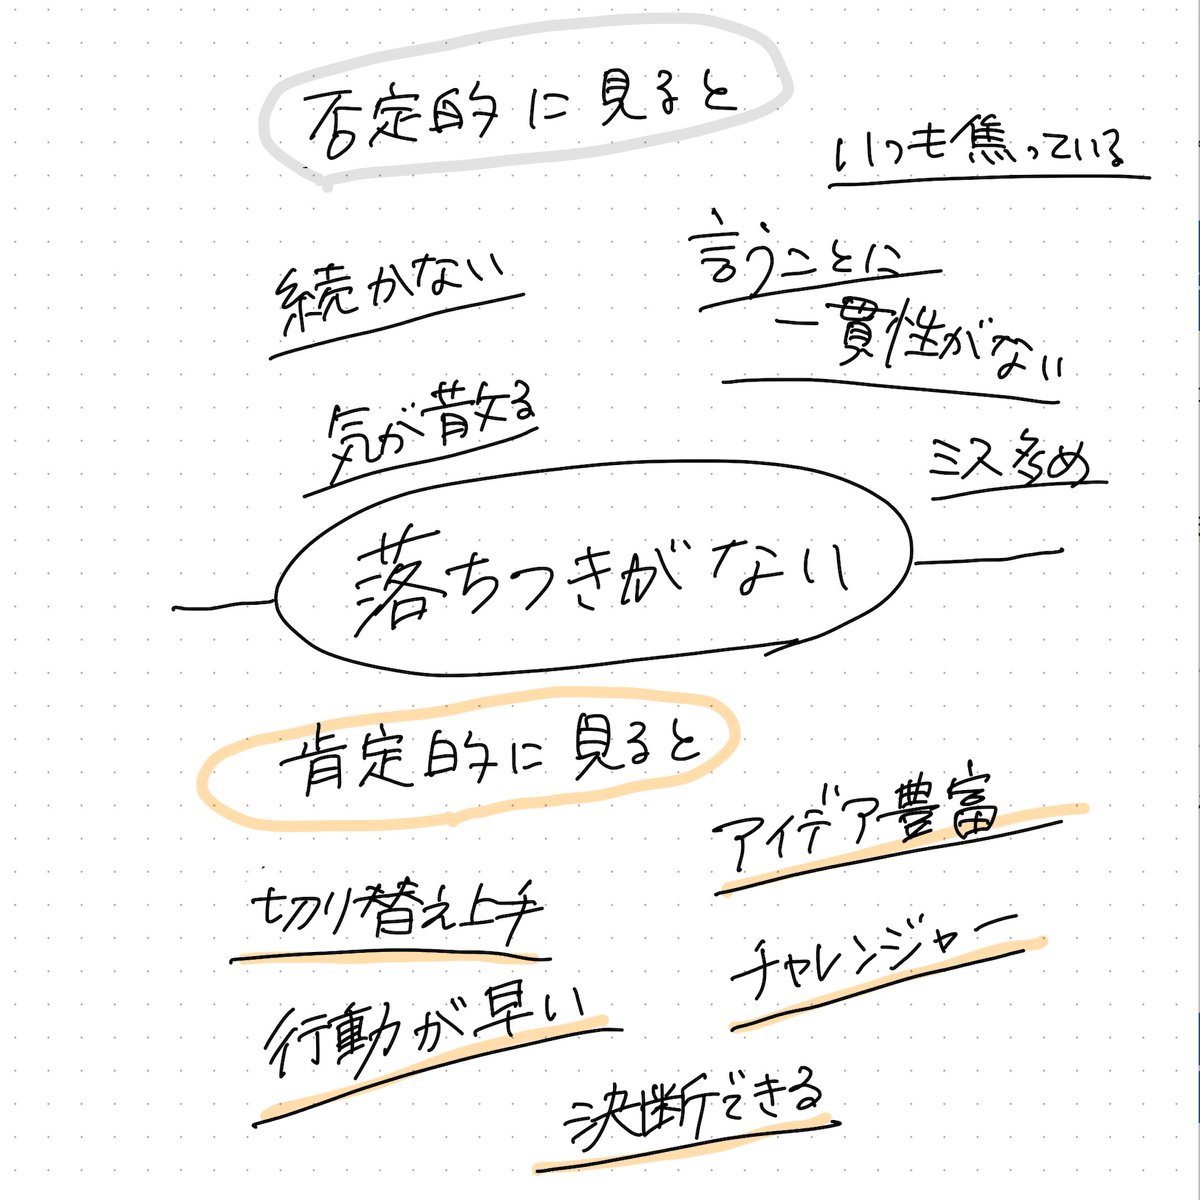 否定的に見ると
いつも焦っている
続かない
言うことに
一貫性がない
気が散る
ミス多め
落ちつきがない
肯定的に見ると
アイデア豊富
切り替え上手
チャレンジャー
行動が早い
決断できる